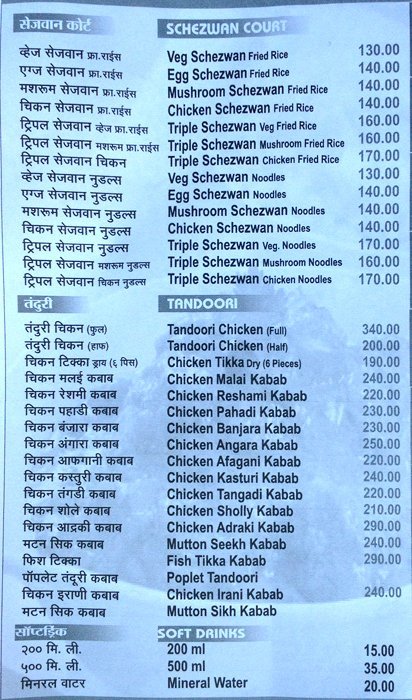 सेजवान कोर्ट SCHEZWAN COURT
व्हेज सेजवान फ्रा.राईस Veg Schezwan Fried Rice 130.00
एग्ज सेजवान फ्रा.राईस Egg Schezwan Fried Rice 140.00
मशरूम सेजवान फ्रा.राईस Mushroom Schezwan Fried Rice 140.00
चिकन सेजवान फ्रा.राईस Chicken Schezwan Fried Rice 140.00
ट्रिपल सेजवान व्हेज फ्रा.राईस Triple Schezwan Veg Fried Rice 160.00
ट्रिपल सेजवान मशरूम फ्रा.राईस Triple Schezwan Mushroom Fried Rice 160.00
ट्रिपल सेजवान चिकन Triple Schezwan Chicken Fried Rice 170.00
व्हेज सेजवान नुडल्स Veg Schezwan Noodles 130.00
एग्ज सेजवान नुडल्स Egg Schezwan Noodles 140.00
मशरूम सेजवान नुडल्स Mushroom Schezwan Noodles 140.00
चिकन सेजवान नुडल्स Chicken Schezwan Noodles 140.00
ट्रिपल सेजवान नुडल्स Triple Schezwan Veg. Noodles 170.00
ट्रिपल सेजवान मशरूम नुडल्स Triple Schezwan Mushroom Noodles 160.00
ट्रिपल सेजवान चिकन नुडल्स Triple Schezwan Chicken Noodles 170.00
तंदुरी TANDOORI
तंदुरी चिकन (फुल) Tandoori Chicken (Full) 340.00
तंदुरी चिकन (हाफ) Tandoori Chicken (Half) 200.00
चिकन टिक्का ड्राय (६ पिस) Chicken Tikka Dry (6 Pieces) 190.00
चिकन मलई कबाब Chicken Malai Kabab 240.00
चिकन रेशमी कबाब Chicken Reshami Kabab 220.00
चिकन पहाडी कबाब Chicken Pahadi Kabab 230.00
चिकन बंजारा कबाब Chicken Banjara Kabab 230.00
चिकन अंगारा कबाब Chicken Angara Kabab 250.00
चिकन आफगानी कबाब Chicken Afagani Kabab 220.00
चिकन कस्तुरी कबाब Chicken Kasturi Kabab 240.00
चिकन तंगडी कबाब Chicken Tangadi Kabab 220.00
चिकन शोले कबाब Chicken Sholly Kabab 210.00
चिकन आद्रकी कबाब Chicken Adraki Kabab 290.00
मटन सिक कबाब Mutton Seekh Kabab 240.00
फिश टिक्का Fish Tikka Kabab 290.00
पॉपलेट तंदूरी कबाब Poplet Tandoori
चिकन इराणी कबाब Chicken Irani Kabab 240.00
मटन सिक कबाब Mutton Sikh Kabab
सॉप्टड्रिंक SOFT DRINKS
२०० मि. ली. 200 ml 15.00
५०० मि. ली. 500 ml 35.00
मिनरल वाटर Mineral Water 20.00